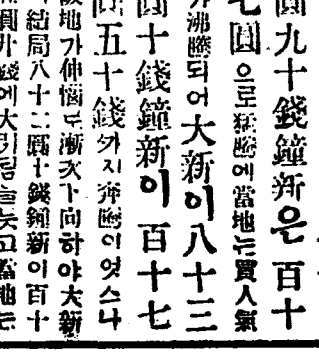 圓九十錢鐘新은百十
七圓으로狂騰에當地는買人氣
沸騰되어大新이八十三
圓十錢鐘新이百十七
圓五十錢ᄭᅡ지奔騰이엇스나
地가伸惱漸次下向하야大新
結局八十二圓十錢鐘新이百十
錢에大引當地는